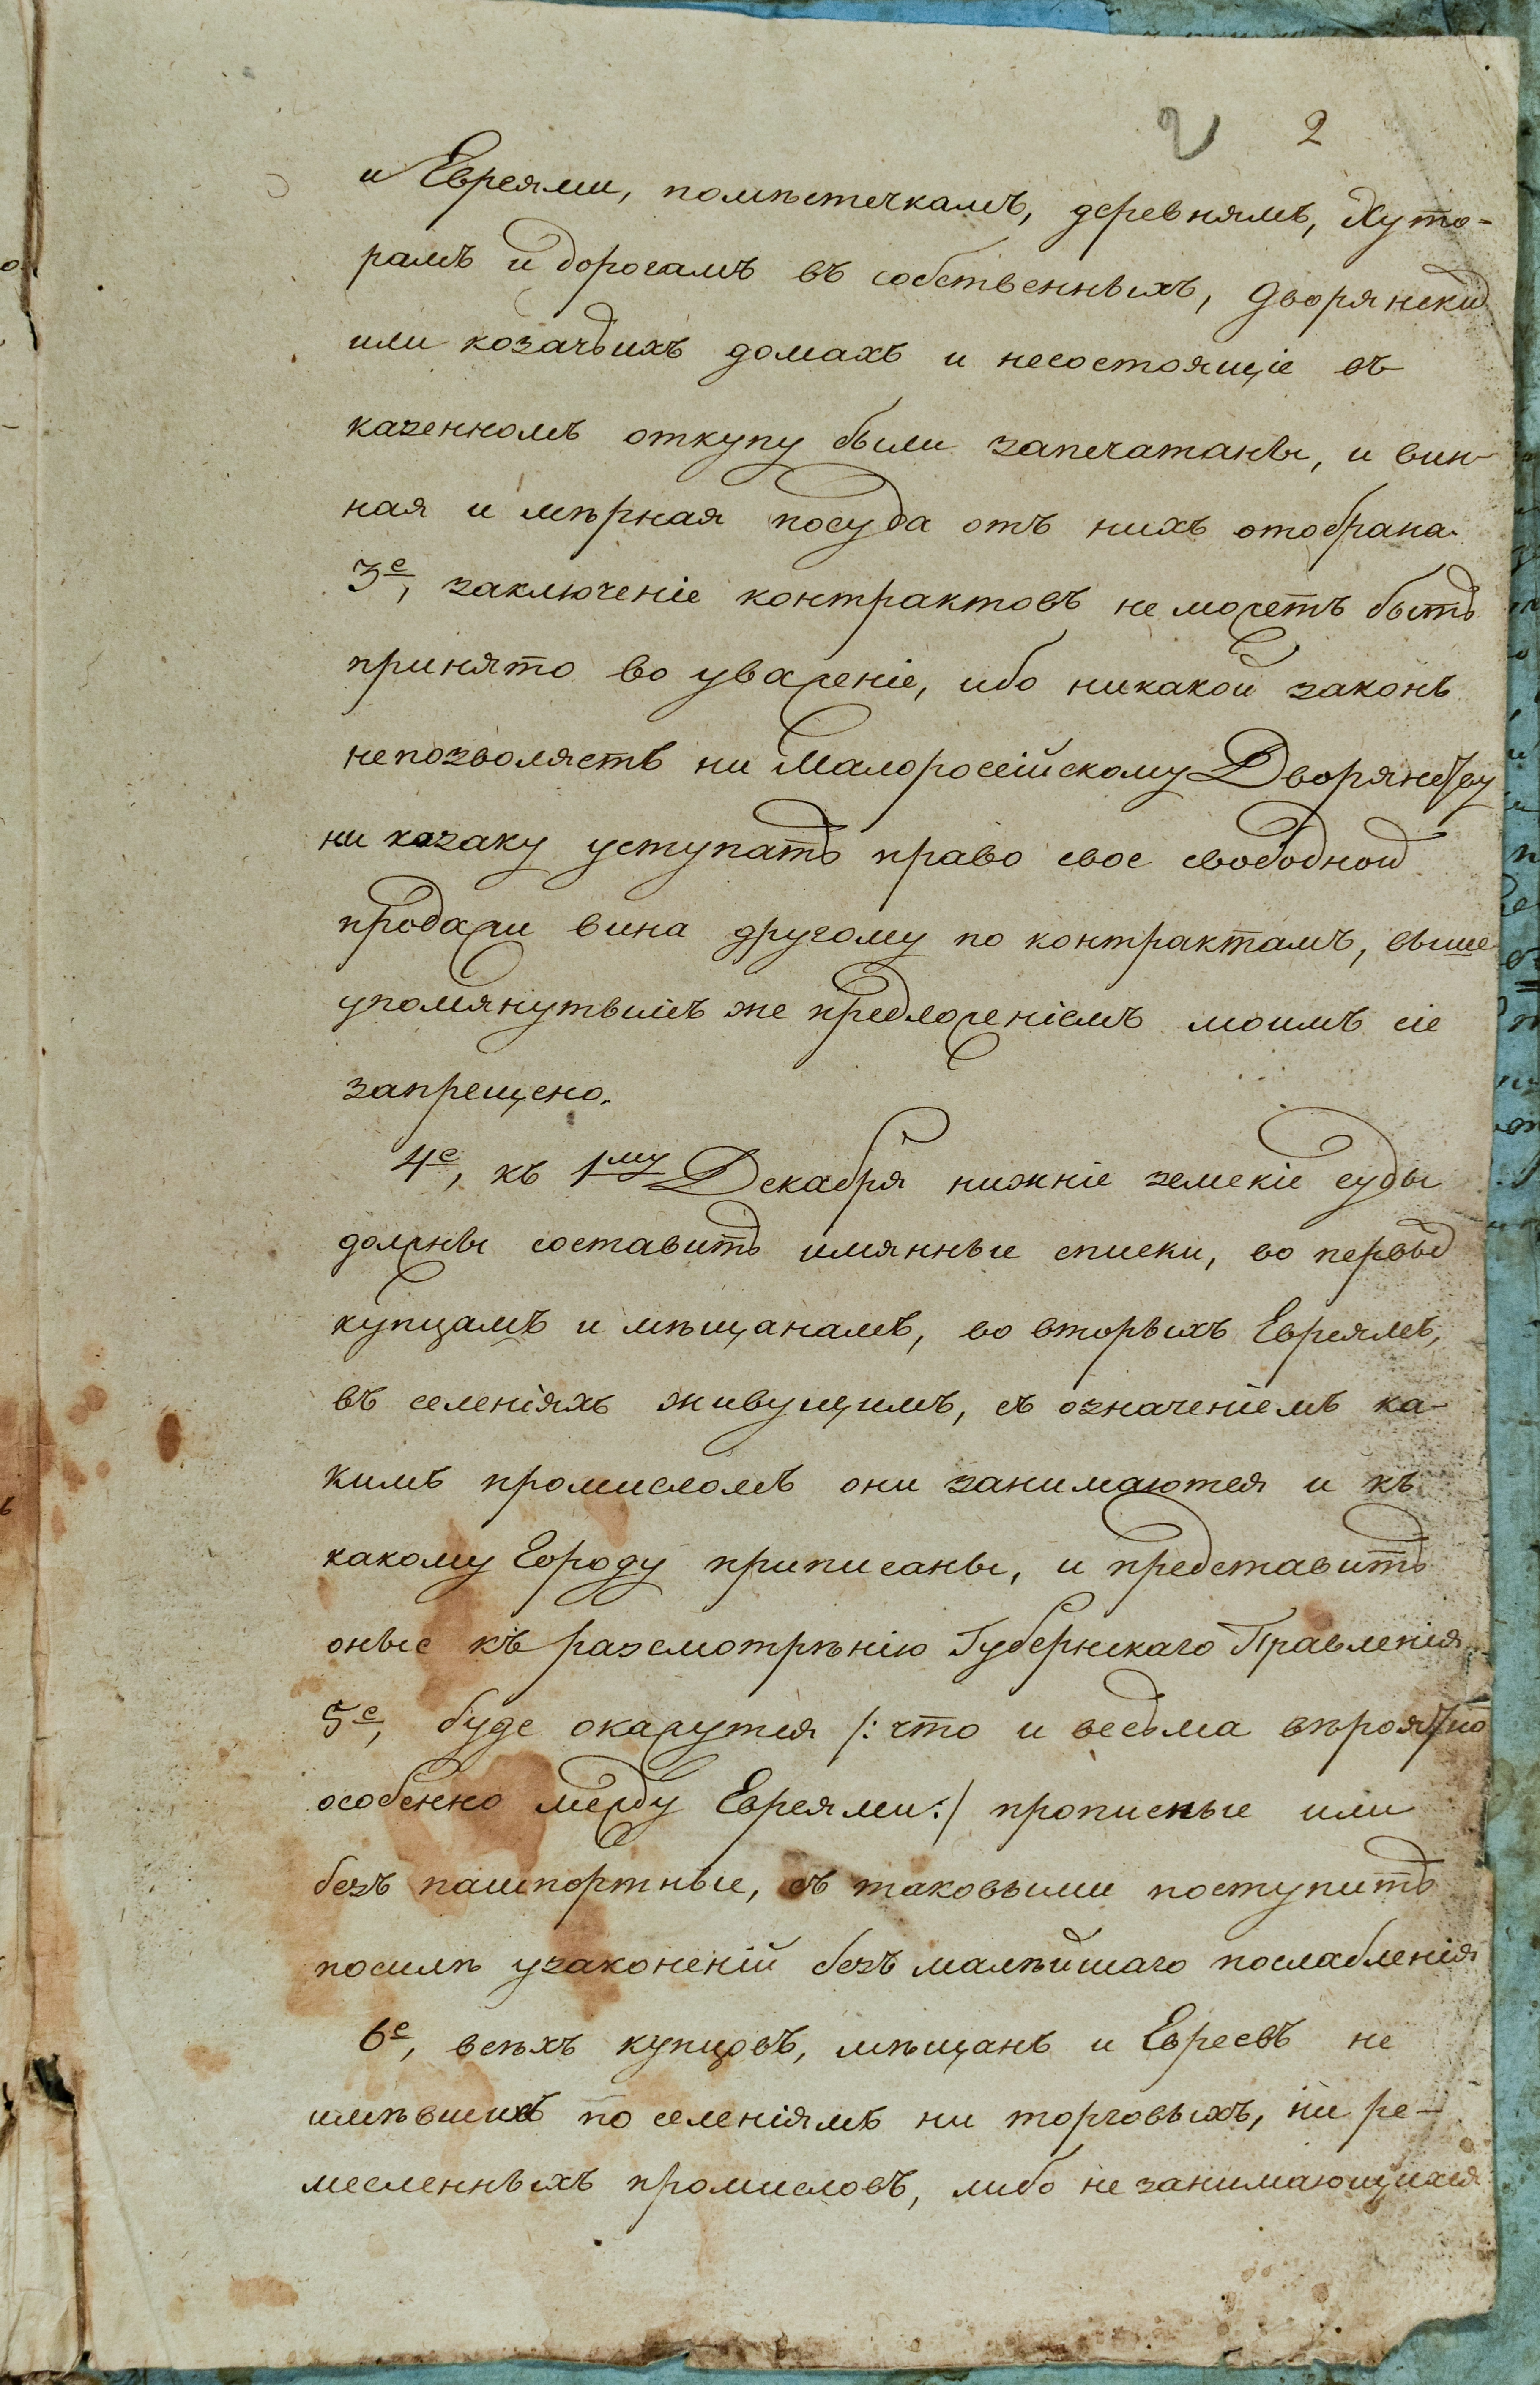 2 2
и Евреями, помѣстечкамъ, деревнямъ, Хуто-
рамъ и дорогамъ въ собственныхъ, дворянских
или козачьихъ домахъ и несостоящіе въ
казенномъ откупу были запечатаны, и вин-
ная и мѣрная посуда отъ нихъ отобрана.
3е, заключеніе контрактовъ не можетъ быть
принято во уваженіе, ибо никакой законъ
непозволяетъ ни Малоросійскому Дворянству
ни казаку уступать право свое свободной
продажи вина другому по контрактамъ, выше
упомянутымъ же предложеніемъ моимъ сіе
запрещено.
4е, къ 1му Декабря нижніе земскіе суды
должны составить имянные списки, во первых
купцамъ и мѣщанамъ, во вторыхъ Евреямъ,
въ селеніяхъ живущимъ, съ означеніемъ ка-
кимъ промисломъ они занимаются и къ
какому Городу приписаны, и представить
оные къ разсмотрѣнію Губернскаго Правленія.
5е, буде окажутся /: что и весьма вѣроятно
особенно между Евреями :/ прописные или
безъ пашпортные, съ таковыми поступить
посилѣ узаконеній безъ малѣйшаго послабленія
6е, всѣхъ купцовъ, мѣщанъ и Евреевъ не
имѣвшихъ по селеніямъ ни торговыхъ, ни ре-
месленныхъ промисловъ, либо не занимающихся